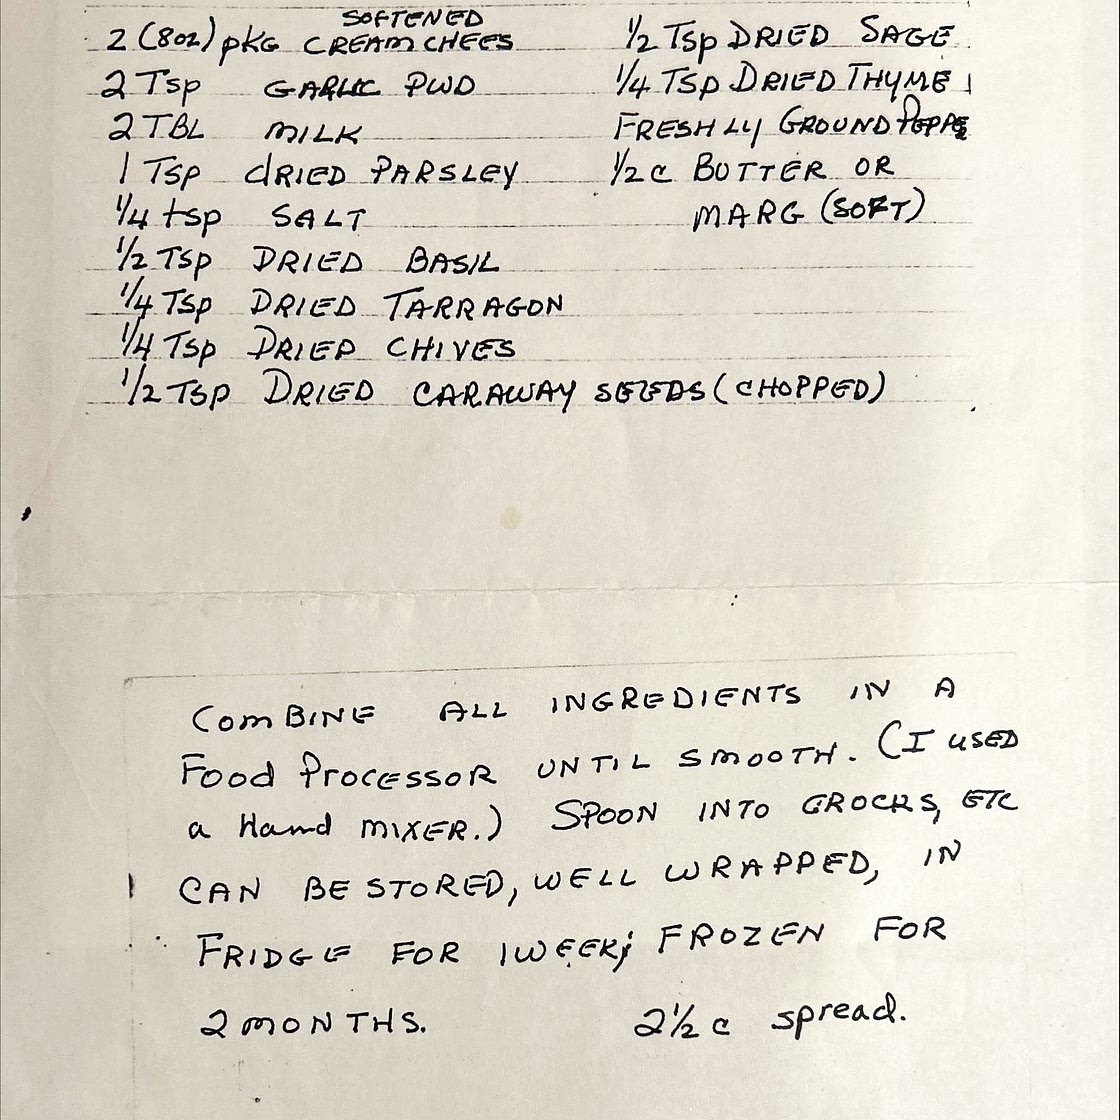 SOFTENED
2 (8oz) pkg CREAM CHEES
2 Tsp GARLIC PWD
2 TBL MILK
1 Tsp dRIED PARSLEY
1/4 tsp SALT
1/2 Tsp DRIED BASIL
1/4 Tsp DRIED TARRAGON
1/4 Tsp DRIED CHIVES
1/2 TSp DRIED CARAWAY SEEDS (CHOPPED)
1/2 Tsp DRIED SAGE
1/4 TSp DRIED THYME
FRESHLLY GROUND PEPPE
1/2 c BUTTER OR
MARG (SOFT)
COMBINE ALL INGREDIENTS IN A
Food Processor UNTIL SMOOTH. (I USED
a Hand MIXER.) SPOON INTO CROCKS, ETC
CAN BE STORED, WELL WRAPPED, IN
FRIDGE FOR 1 WEEK; FROZEN FOR
2 MONTHS. 2 1/2 c spread.